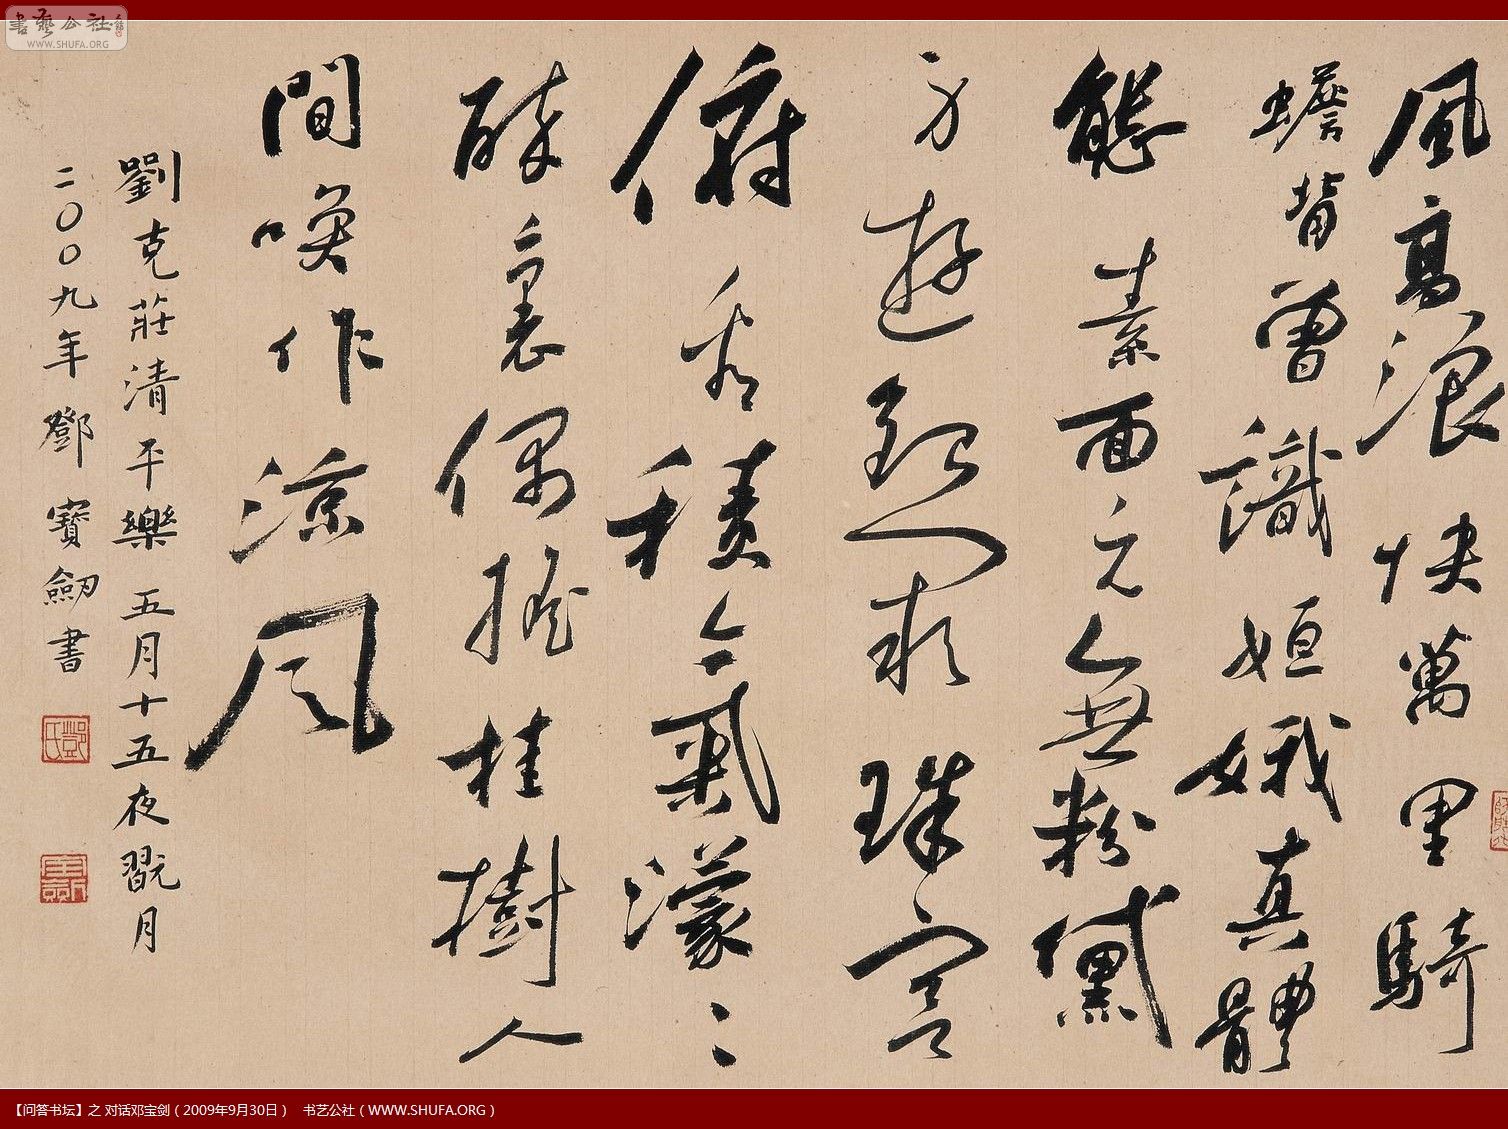 書藝公社
WWW.SHUFA.ORG
風高浪快萬里騎
蟾背曾識姮娥真體
態素面元無粉黛
身遊銀闕珠宮
俯看積氣濛〻
醉裏偶搖桂樹人
間喚作涼風
劉克莊清平樂 五月十五夜翫月
二〇〇九年鄧寶劒書
鄧氏
寶劒
【问答书坛】之 对话邓宝剑（2009年9月30日） 书艺公社（WWW.SHUFA.ORG）